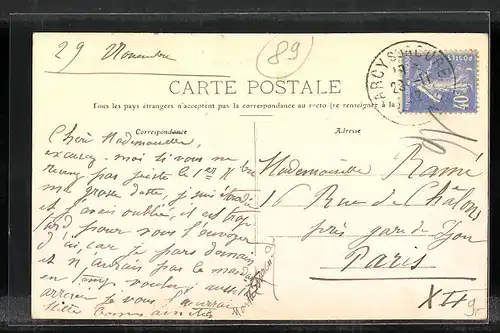 29 Novembre
89
CARTE POSTALE
Tous les pays étrangers n'acceptent pas la correspondance au recto (se renseigner à la
Correspondance
Adresse
ARCY S/ CURE
40c
Chère Mademoiselle,
excusez-moi si vous ne
pas juste le 1er
ma grosse dette, je suis
et j'avais oublié, il est trop
tard pour vous l'envoyer
d'ici, car je pars demain
et n'aurais pas le mandat
en temps voulu; aussi
je vous
amitiés
Mademoiselle Ramé
16 Rue de Châlons
près gare de Lyon
Paris
XII